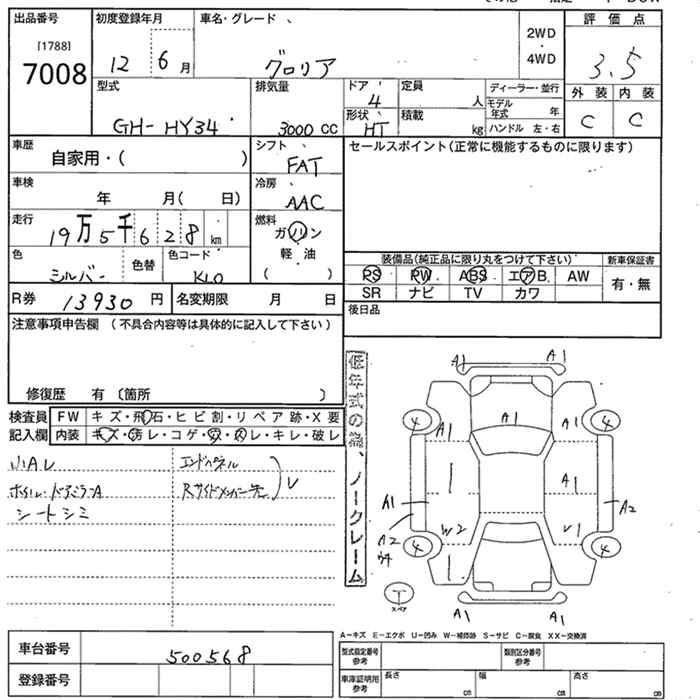 出品番号 初度登録年月 車名・グレード 評価点
[1788]
7008 12 6月 グロリア 2WD・4WD 3.5
型式 排気量 ドア 定員 ディーラー・並行 外装 内装
4 人 モデル年式 年
GH-HY34 3000cc 形状 HT 積載 kg ハンドル 左・右 C C
車歴 シフト セールスポイント(正常に機能するものに限ります)
自家用・( ) FAT
車検 冷房
年 月( 日) AAC
走行 燃料
19万5千628km ガソリン
色 色替 色コード 軽油 装備品(純正品に限り丸をつけて下さい) 新車保証書
シルバー KL0 ( ) PS PW ABS エアB. AW 有・無
R券 13930円 名変期限 月 日 SR ナビ TV カワ
注意事項申告欄(不具合内容等は具体的に記入して下さい) 後日品
修復歴 有〔箇所 〕
低年式の為、ノークレーム
検査員 FW キズ・飛石・ヒビ割・リペア跡・X要
記入欄 内装 キズ・汚レ・コゲ・穴・スレ・キレ・破レ
小A.レ エンドパネル
ホイル・ドアミラーA Rサイドメンバー先 V
シートシミ
A1 A1
4 A1 A1 A1 4
A1 A1 A2
A2 W2 V1
4 4
T スペア
A1 A1
A-キズ E-エクボ U-凹み W-補修跡 S-サビ C-腐食 XX-交換済
車台番号 500568 型式指定番号 参考 類別区分番号 参考
登録番号 車庫証明用 参考 長さ cm 幅 cm 高さ cm